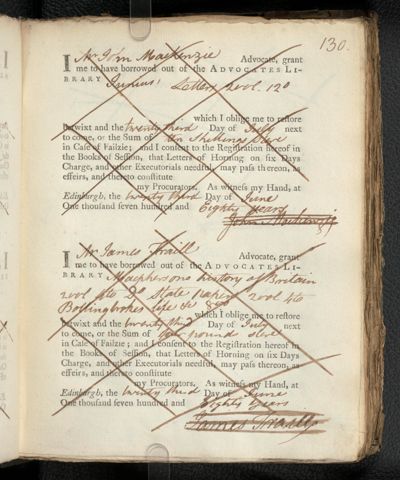 130.
I Mr John Mackenzie Advocate, grant
me to have borrowed out of the ADVOCATES LI-
BRARY Junius' Letters 2 vol. 12o
which I oblige me to restore
betwixt and the twenty third Day of July next
to come, or the Sum of Ten Shellings Ster
in Case of Failzie; and I consent to the Registration hereof in
the Books of Session, that Letters of Horning on six Days
Charge, and other Executorials needful, may pass thereon, as
effeirs, and thereto constitute
my Procurators. As witness my Hand, at
Edinburgh, the twenty third Day of June
One thousand seven hundred and Eighty years
John Mackenzie
I Mr James Traill Advocate, grant
me to have borrowed out of the ADVOCATES LI-
BRARY Macpherson's history of Britain
2 vol 4to & State papers 2 vol 4to
Bollingbrokes life &c 8vo
which I oblige me to restore
betwixt and the twenty third Day of July next
to come, or the Sum of pound ster
in Case of Failzie; and I consent to the Registration hereof in
the Books of Session, that Letters of Horning on six Days
Charge, and other Executorials needful, may pass thereon, as
effeirs, and thereto constitute
my Procurators. As witness my Hand, at
Edinburgh, the twenty third Day of June
One thousand seven hundred and Eighty years
James Traill